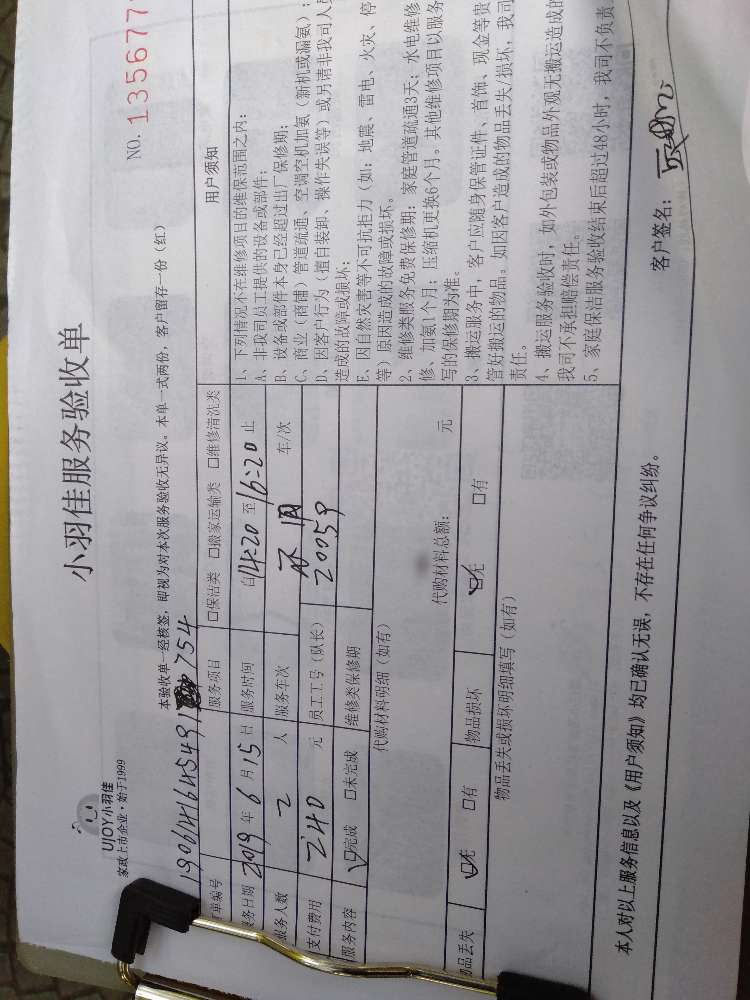 UJOY小羽佳
家政上市企业·始于1999
小羽佳服务验收单
NO. 135677
本验收单一经核签，即视为对本次服务验收无异议。本单一式两份，客户留存一份（红）
订单编号 1906141645491 754
服务项目 □保洁类 □搬家运输类 □维修清洗类
服务日期 2019 年 6 月 15 日 服务时间 自 14:20 至 16:20 止
服务人数 2 人 服务车次 车/次
支付费用 240 元 员工工号（队长） 20059
服务内容 ☑完成 □未完成 维修类保修期
代购材料明细（如有）
代购材料总额： 元
物品丢失 ☑无 □有 物品损坏 ☑无 □有
物品丢失或损坏明细填写（如有）
用户须知
1、下列情况不在维修项目的维保范围之内：
A、非我司员工提供的设备或部件；
B、设备或部件本身已经超过出厂保修期；
C、商业（商铺）管道疏通、空调空机加氨（新机或漏氨）；
D、因客户行为（擅自装卸、操作失误等）或另请非我司人员
造成的故障或损坏；
E、因自然灾害等不可抗拒力（如：地震、雷电、火灾、停
等）原因造成的故障或损坏。
2、维修类服务免费保修期：家庭管道疏通3天；水电维修
修、加氨1个月；压缩机更换6个月。其他维修项目以服务
写的保修期为准。
3、搬运服务中，客户应随身保管证件、首饰、现金等贵
管好搬运的物品。如因客户造成的物品丢失/损坏，我司
责任。
4、搬运服务验收时，如外包装或物品外观无搬运造成的
我司不承担赔偿责任。
5、家庭保洁服务验收结束后超过48小时，我司不负责
本人对以上服务信息以及《用户须知》均已确认无误，不存在任何争议纠纷。
客户签名：